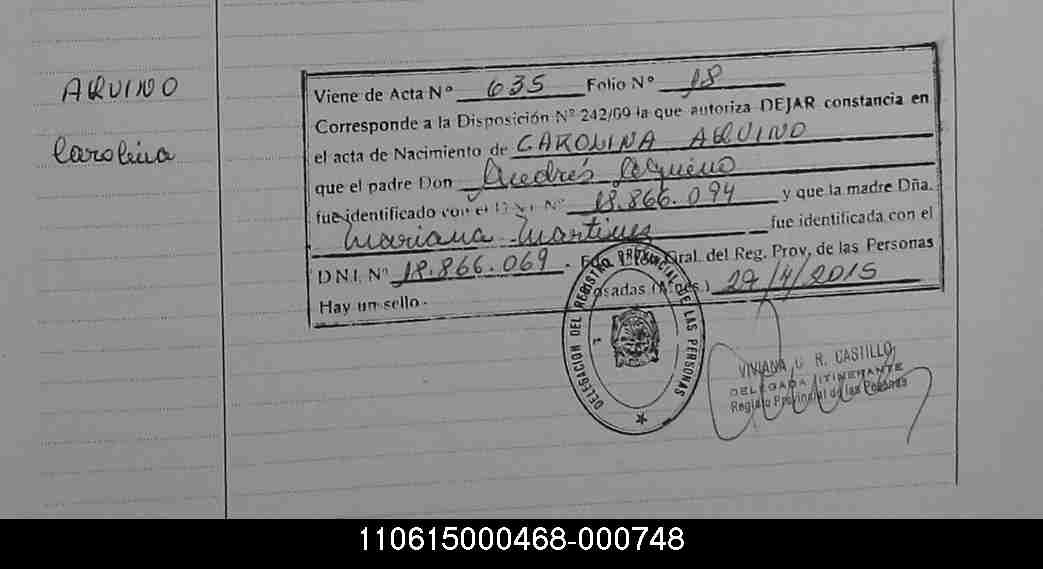 AQUINO
Carolina
Viene de Acta Nº 635 Folio Nº 18
Corresponde a la Disposición Nº 242/09 la que autoriza DEJAR constancia en
el acta de Nacimiento de CAROLINA AQUINO
que el padre Don Andrés
fue identificado con el D.N.I. Nº 18.866.094 y que la madre Dña.
Mariana Martinez fue identificada con el
D.N.I. Nº 18.866.069 . Gral. del Reg. Prov. de las Personas
Hay un sello. Posadas (Mnes.) 29/4/2015
DELEGACION DEL REGISTRO PROVINCIAL DE LAS PERSONAS
VIVIANA R. CASTILLO
DELEGADA ITINERANTE
Registro Provincial de las Personas
110615000468-000748